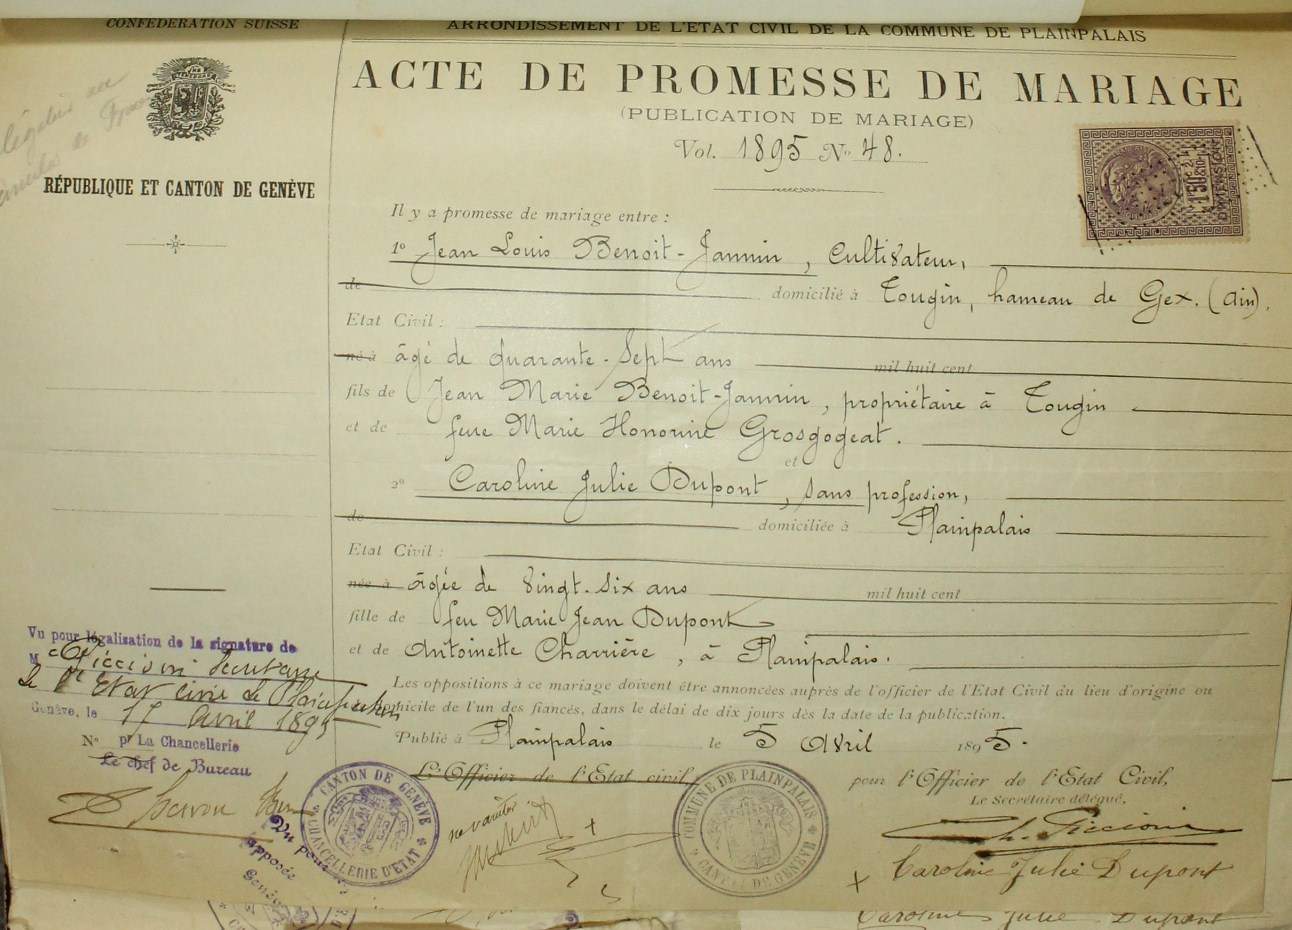 CONFÉDÉRATION SUISSE
RÉPUBLIQUE ET CANTON DE GENÈVE
ARRONDISSEMENT DE L'ÉTAT CIVIL DE LA COMMUNE DE PLAINPALAIS
ACTE DE PROMESSE DE MARIAGE
(PUBLICATION DE MARIAGE)
Vol. 1895 No 48.
DIMENSION
Il y a promesse de mariage entre :
1o Jean Louis Benoit-Jannin, Cultivateur,
de domicilié à Tougin, hameau de Gex. (Ain).
Etat Civil :
né à âgé de quarante-sept ans mil huit cent
fils de Jean Marie Benoit-Jannin, propriétaire à Tougin
et de feue Marie Honorine Grosgogeat.
et
2o Caroline Julie Dupont, sans profession,
de domiciliée à Plainpalais
Etat Civil :
née à âgée de vingt-six ans mil huit cent
fille de feu Marie Jean Dupont
et de Antoinette Charrière, à Plainpalais.
Les oppositions à ce mariage doivent être annoncées auprès de l'officier de l'Etat Civil du lieu d'origine ou
domicile de l'un des fiancés, dans le délai de dix jours dès la date de la publication.
Publié à Plainpalais le 5 Avril 1895.
L'Officier de l'Etat civil,
pour l'Officier de l'Etat Civil,
Le Secrétaire délégué,
Ch. Piccioni
Caroline Julie Dupont
Caroline Julie Dupont
Vu pour légalisation de la signature de
M Piccioni Secrétaire
de l'Etat civil de Plainpalais
Genève, le 17 Avril 1895
No pr La Chancellerie
Le chef de Bureau
CANTON DE GENÈVE
CHANCELLERIE D'ETAT
COMMUNE DE PLAINPALAIS
CANTON DE GENÈVE
ne varietur
Vu pour
apposée
Genève